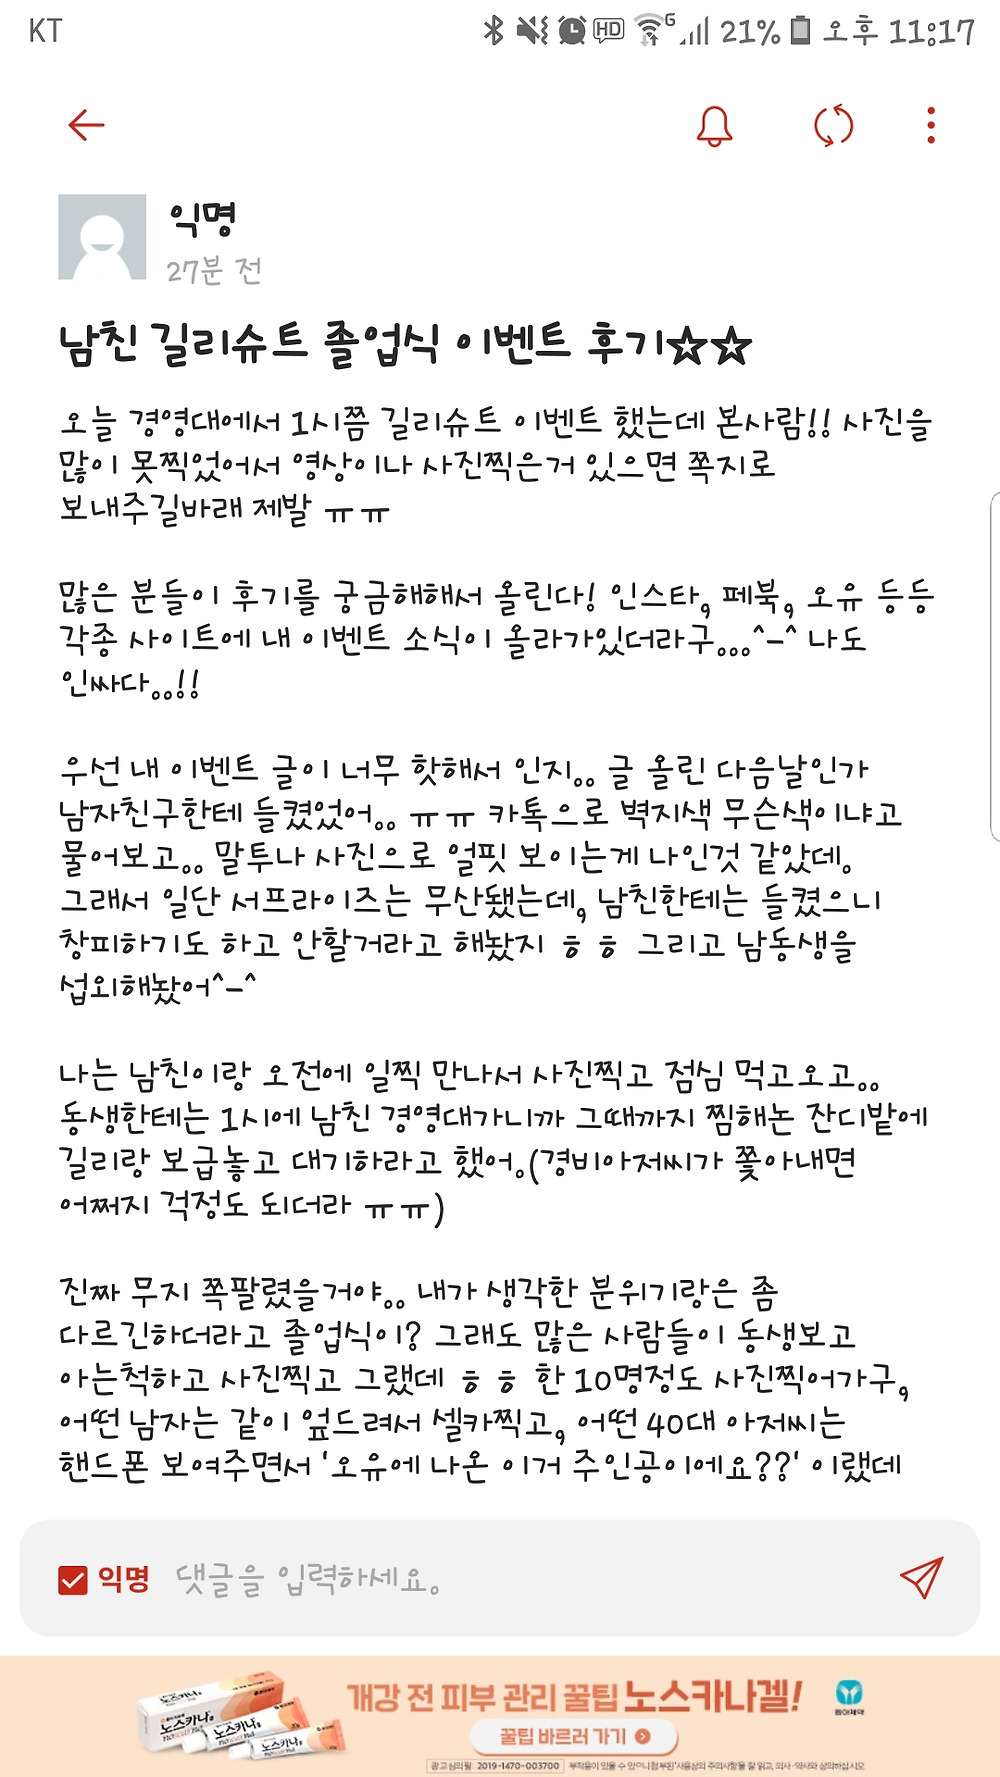 KT
HD
G
21%
오후 11:17
익명
27분 전
남친 길리슈트 졸업식 이벤트 후기☆☆
오늘 경영대에서 1시쯤 길리슈트 이벤트 했는데 본사람!! 사진을
많이 못찍었어서 영상이나 사진찍은거 있으면 쪽지로
보내주길바래 제발 ㅠㅠ
많은 분들이 후기를 궁금해해서 올린다! 인스타, 페북, 오유 등등
각종 사이트에 내 이벤트 소식이 올라가있더라구...^-^ 나도
인싸다..!!
우선 내 이벤트 글이 너무 핫해서 인지.. 글 올린 다음날인가
남자친구한테 들켰었어.. ㅠㅠ 카톡으로 벽지색 무슨색이냐고
물어보고.. 말투나 사진으로 얼핏 보이는게 나인것 같았데.
그래서 일단 서프라이즈는 무산됐는데, 남친한테는 들켰으니
창피하기도 하고 안할거라고 해놨지 ㅎㅎ 그리고 남동생을
섭외해놨어^-^
나는 남친이랑 오전에 일찍 만나서 사진찍고 점심 먹고오고..
동생한테는 1시에 남친 경영대가니까 그때까지 찜해논 잔디밭에
길리랑 보급놓고 대기하라고 했어.(경비아저씨가 쫓아내면
어쩌지 걱정도 되더라 ㅠㅠ)
진짜 무지 쪽팔렸을거야.. 내가 생각한 분위기랑은 좀
다르긴하더라고 졸업식이? 그래도 많은 사람들이 동생보고
아는척하고 사진찍고 그랬데 ㅎㅎ 한 10명정도 사진찍어가구,
어떤 남자는 같이 엎드려서 셀카찍고, 어떤 40대 아저씨는
핸드폰 보여주면서 '오유에 나온 이거 주인공이에요??' 이랬데
익명 댓글을 입력하세요.
개강 전 피부 관리 꿀팁 노스카나겔!
꿀팁 바르러 가기
동아제약
노스카나
노스카나
노스카나
광고심의필: 2019-1470-003700 부작용이 있을 수 있으니 첨부된 '사용상의 주의사항'을 잘 읽고, 의사·약사와 상의하십시오